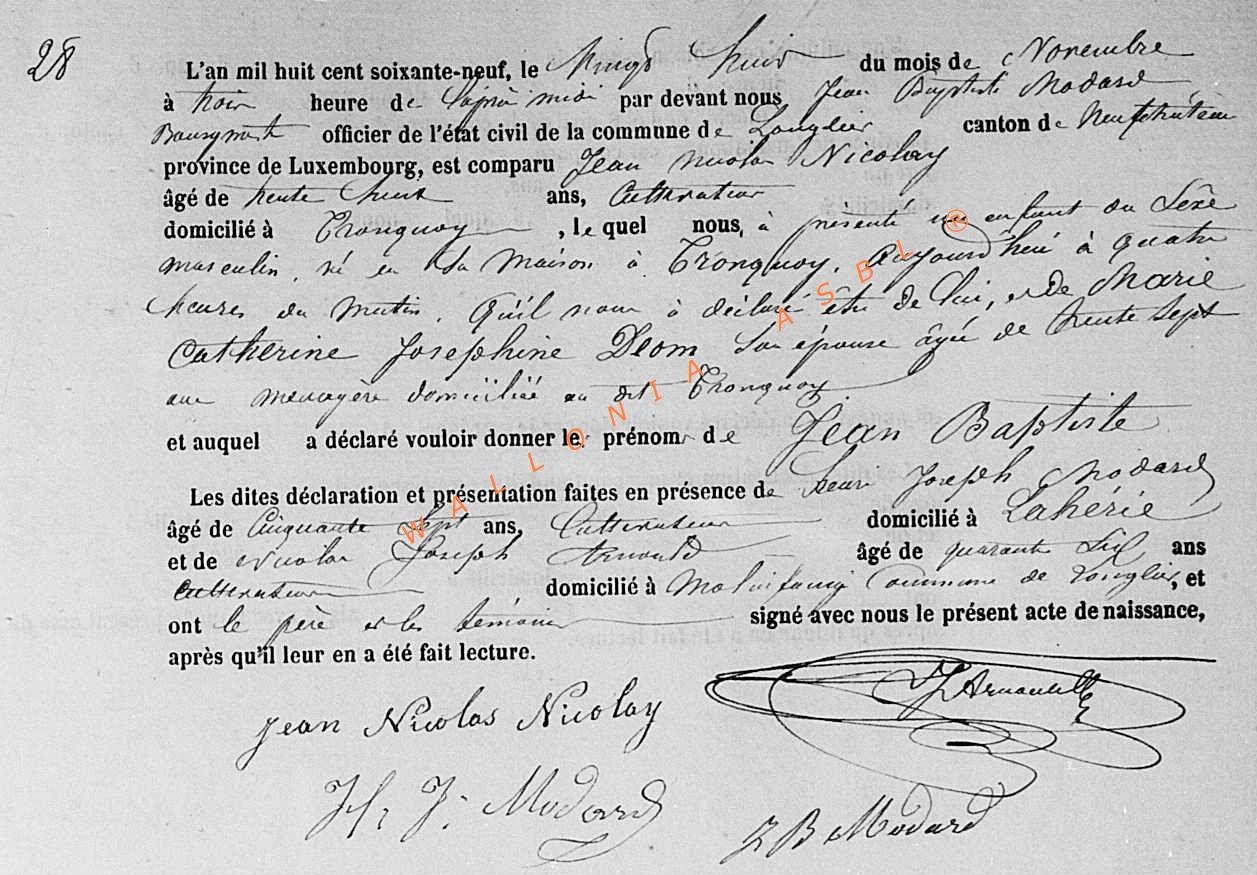 28
L'an mil huit cent soixante-neuf, le Vingt huit du mois de Novembre
à trois heure de l'après midi par devant nous Jean Baptiste Modard
Bourgmestre officier de l'état civil de la commune de Longlier canton de Neufchâteau
province de Luxembourg, est comparu Jean Nicolas Nicolay
âgé de trente huit ans, Cultivateur
domicilié à Tronquoy, le quel nous, à présenté un enfant du Sexe
masculin, né en sa maison à Tronquoy, Aujourd'hui à quatre
heures du Matin, Qu'il nous à déclaré être de lui, et de Marie
Catherine Josephine Deom Son épouse âgée de trente Sept
ans menagère domiciliée au dit Tronquoy
et auquel a déclaré vouloir donner les prénoms de Jean Baptiste
Les dites déclaration et présentation faites en présence de Henri Joseph Modard
âgé de Cinquante Sept ans, Cultivateur domicilié à Lahérie
et de Nicolas Joseph Arnould âgé de quarante Six ans
Cultivateur domicilié à Molinfaing Commune de Longlier, et
ont le père et les témoins signé avec nous le présent acte de naissance,
après qu'il leur en a été fait lecture.
Jean Nicolas Nicolay
H. J. Modard
J B Modard
WALLONIA ASBL ®